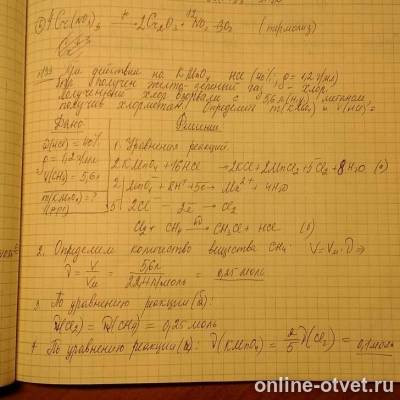 4Cr(NO3)3 → 2Cr2O3 + 12NO2 + 3O2 (термолиз)
При действии на KMnO4 HCl (40%, ρ = 1,2 г/мл)
был получен желто-зелёный газ - хлор.
хлор с 5,6 л (н.у.) метаном,
получив хлорметан. Определите m(KMnO4) и V(HCl) = ?
Дано:
Решение
ω(HCl) = 40%
ρ = 1,2 г/мл
V(CH4) = 5,6 л
m(KMnO4) = ?
1. Уравнения реакций:
2KMnO4 + 16HCl → 2KCl + 2MnCl2 + 5Cl2 + 8H2O (а)
2 | MnO4 + 8H+ + 5e → Mn2+ + 4H2O
5 | 2Cl- - 2e → Cl2
Cl2 + CH4 → CH3Cl + HCl (б)
2. Определяем количество вещества CH4: V = Vм · ν ⇒
ν = V/Vм = 5,6 л / 22,4 л/моль = 0,25 моль
3. По уравнению реакции (б):
ν(Cl2) = ν(CH4) = 0,25 моль
4. По уравнению реакции (а): ν(KMnO4) = 2/5 ν(Cl2) = 0,1 моль
online-otvet.ru